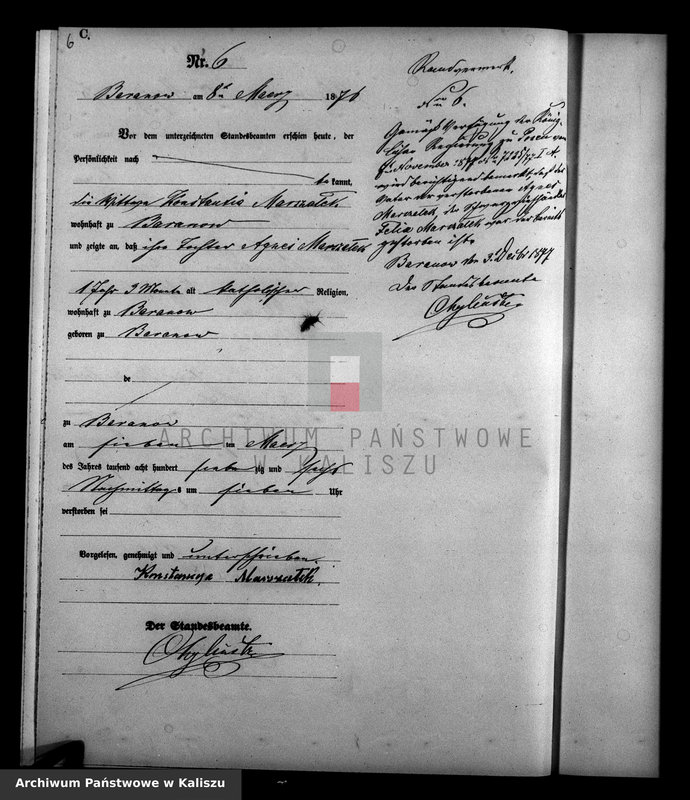 6
C.
Nr. 6
Baranow am 8ten Maerz 1876
Vor dem unterzeichneten Standesbeamten erschien heute, der
Persönlichkeit nach
be kannt,
die Wittwe Konstantia Marszalek
wohnhaft zu Baranow
und zeigte an, daß ihre Tochter Agnes Marszalek
1 Jahr 3 Monate alt katholischer Religion,
wohnhaft zu Baranow
geboren zu Baranow
de
zu Baranow
am sieben ten Maerz
des Jahres tausend acht hundert siebenzig und sechs
Nachmittags um sieben Uhr
verstorben sei
Vorgelesen, genehmigt und unterschrieben.
Konstancya Marszałek.
Der Standesbeamte.
Randvermerk.
Nro 6.
Gemäß Verfügung der König-
lichen Regierung zu Posen vom
November 1877 I A.
wird berichtigend bemerkt, daß der
Vater der verstorbenen Agnes
Marszalek, der
Felix Marszalek war der bereits
gestorben ist.
Baranow den 3t Dezbr 1877
Der Standesbeamte
ARCHIWUM PAŃSTWOWE
W KALISZU
Archiwum Państwowe w Kaliszu